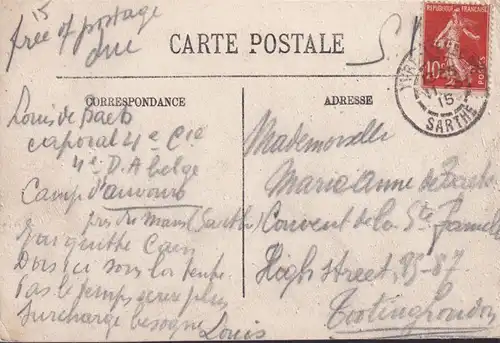 15
free of postage
due
CARTE POSTALE
REPUBLIQUE FRANÇAISE
10c
POSTES
15
SARTHE
CORRESPONDANCE
Louis de
caporal 4e Cie
4e D.A belge
Camp d'auvours
près du Mans (Sarthe)
J'ai quitté Caen
Dors ici sous la tente
Pas le temps
Surcharge besogne
Louis
ADRESSE
Mademoiselle
Marie Anne de
Couvent de la Ste Famille
High street, 85-87
Tooting London